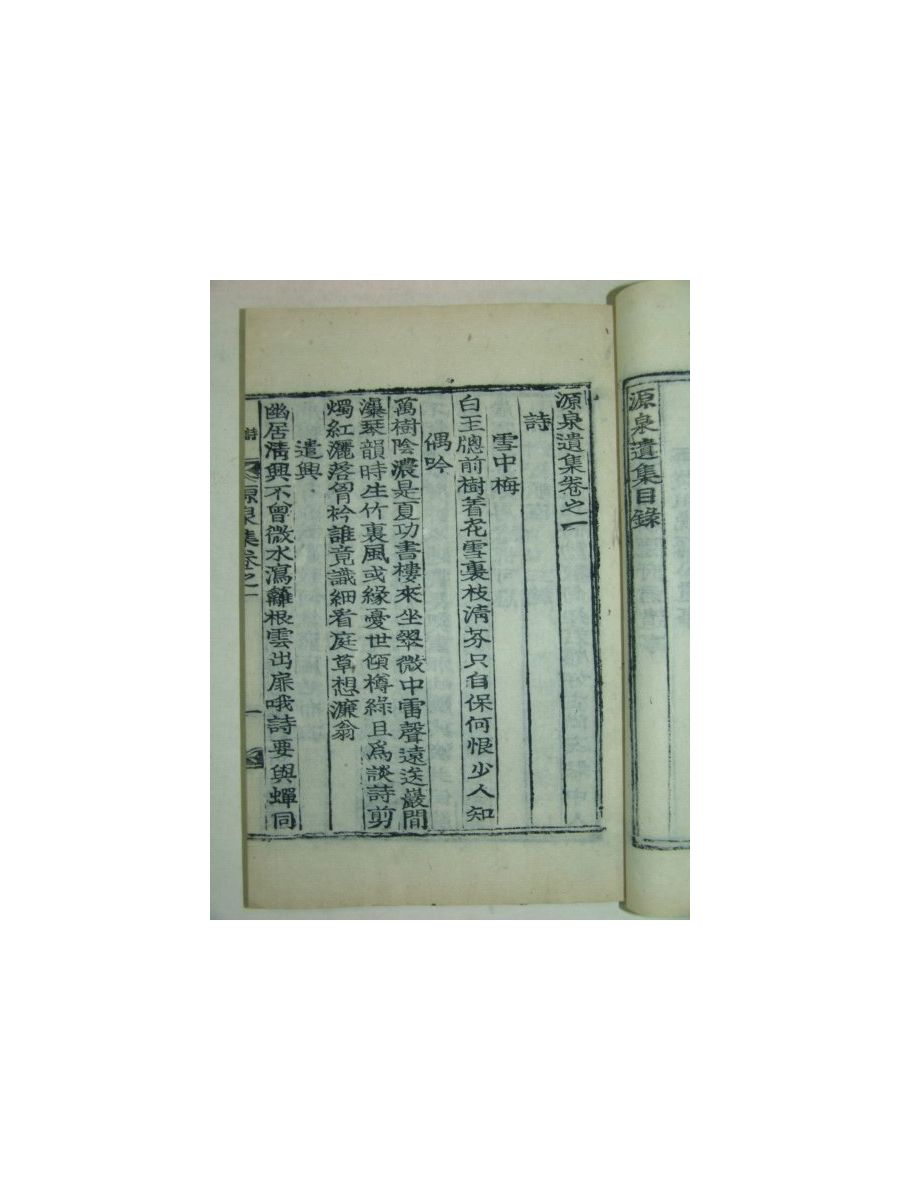 源泉遺集目錄
源泉遺集卷之一
詩
雪中梅
白玉牕前樹着花雪裏枝清芬只自保何恨少人知
偶吟
萬樹陰濃是夏功書樓來坐翠微中雷聲遠送巖間
瀑琴韻時生竹裏風或緣憂世傾樽綠且爲談詩剪
燭紅灑落胷衿誰竟識細看庭草想濂翁
遣興
幽居淸興不曾微水瀉籬根雲出扉哦詩要與蟬同
詩 源泉集卷之一 一